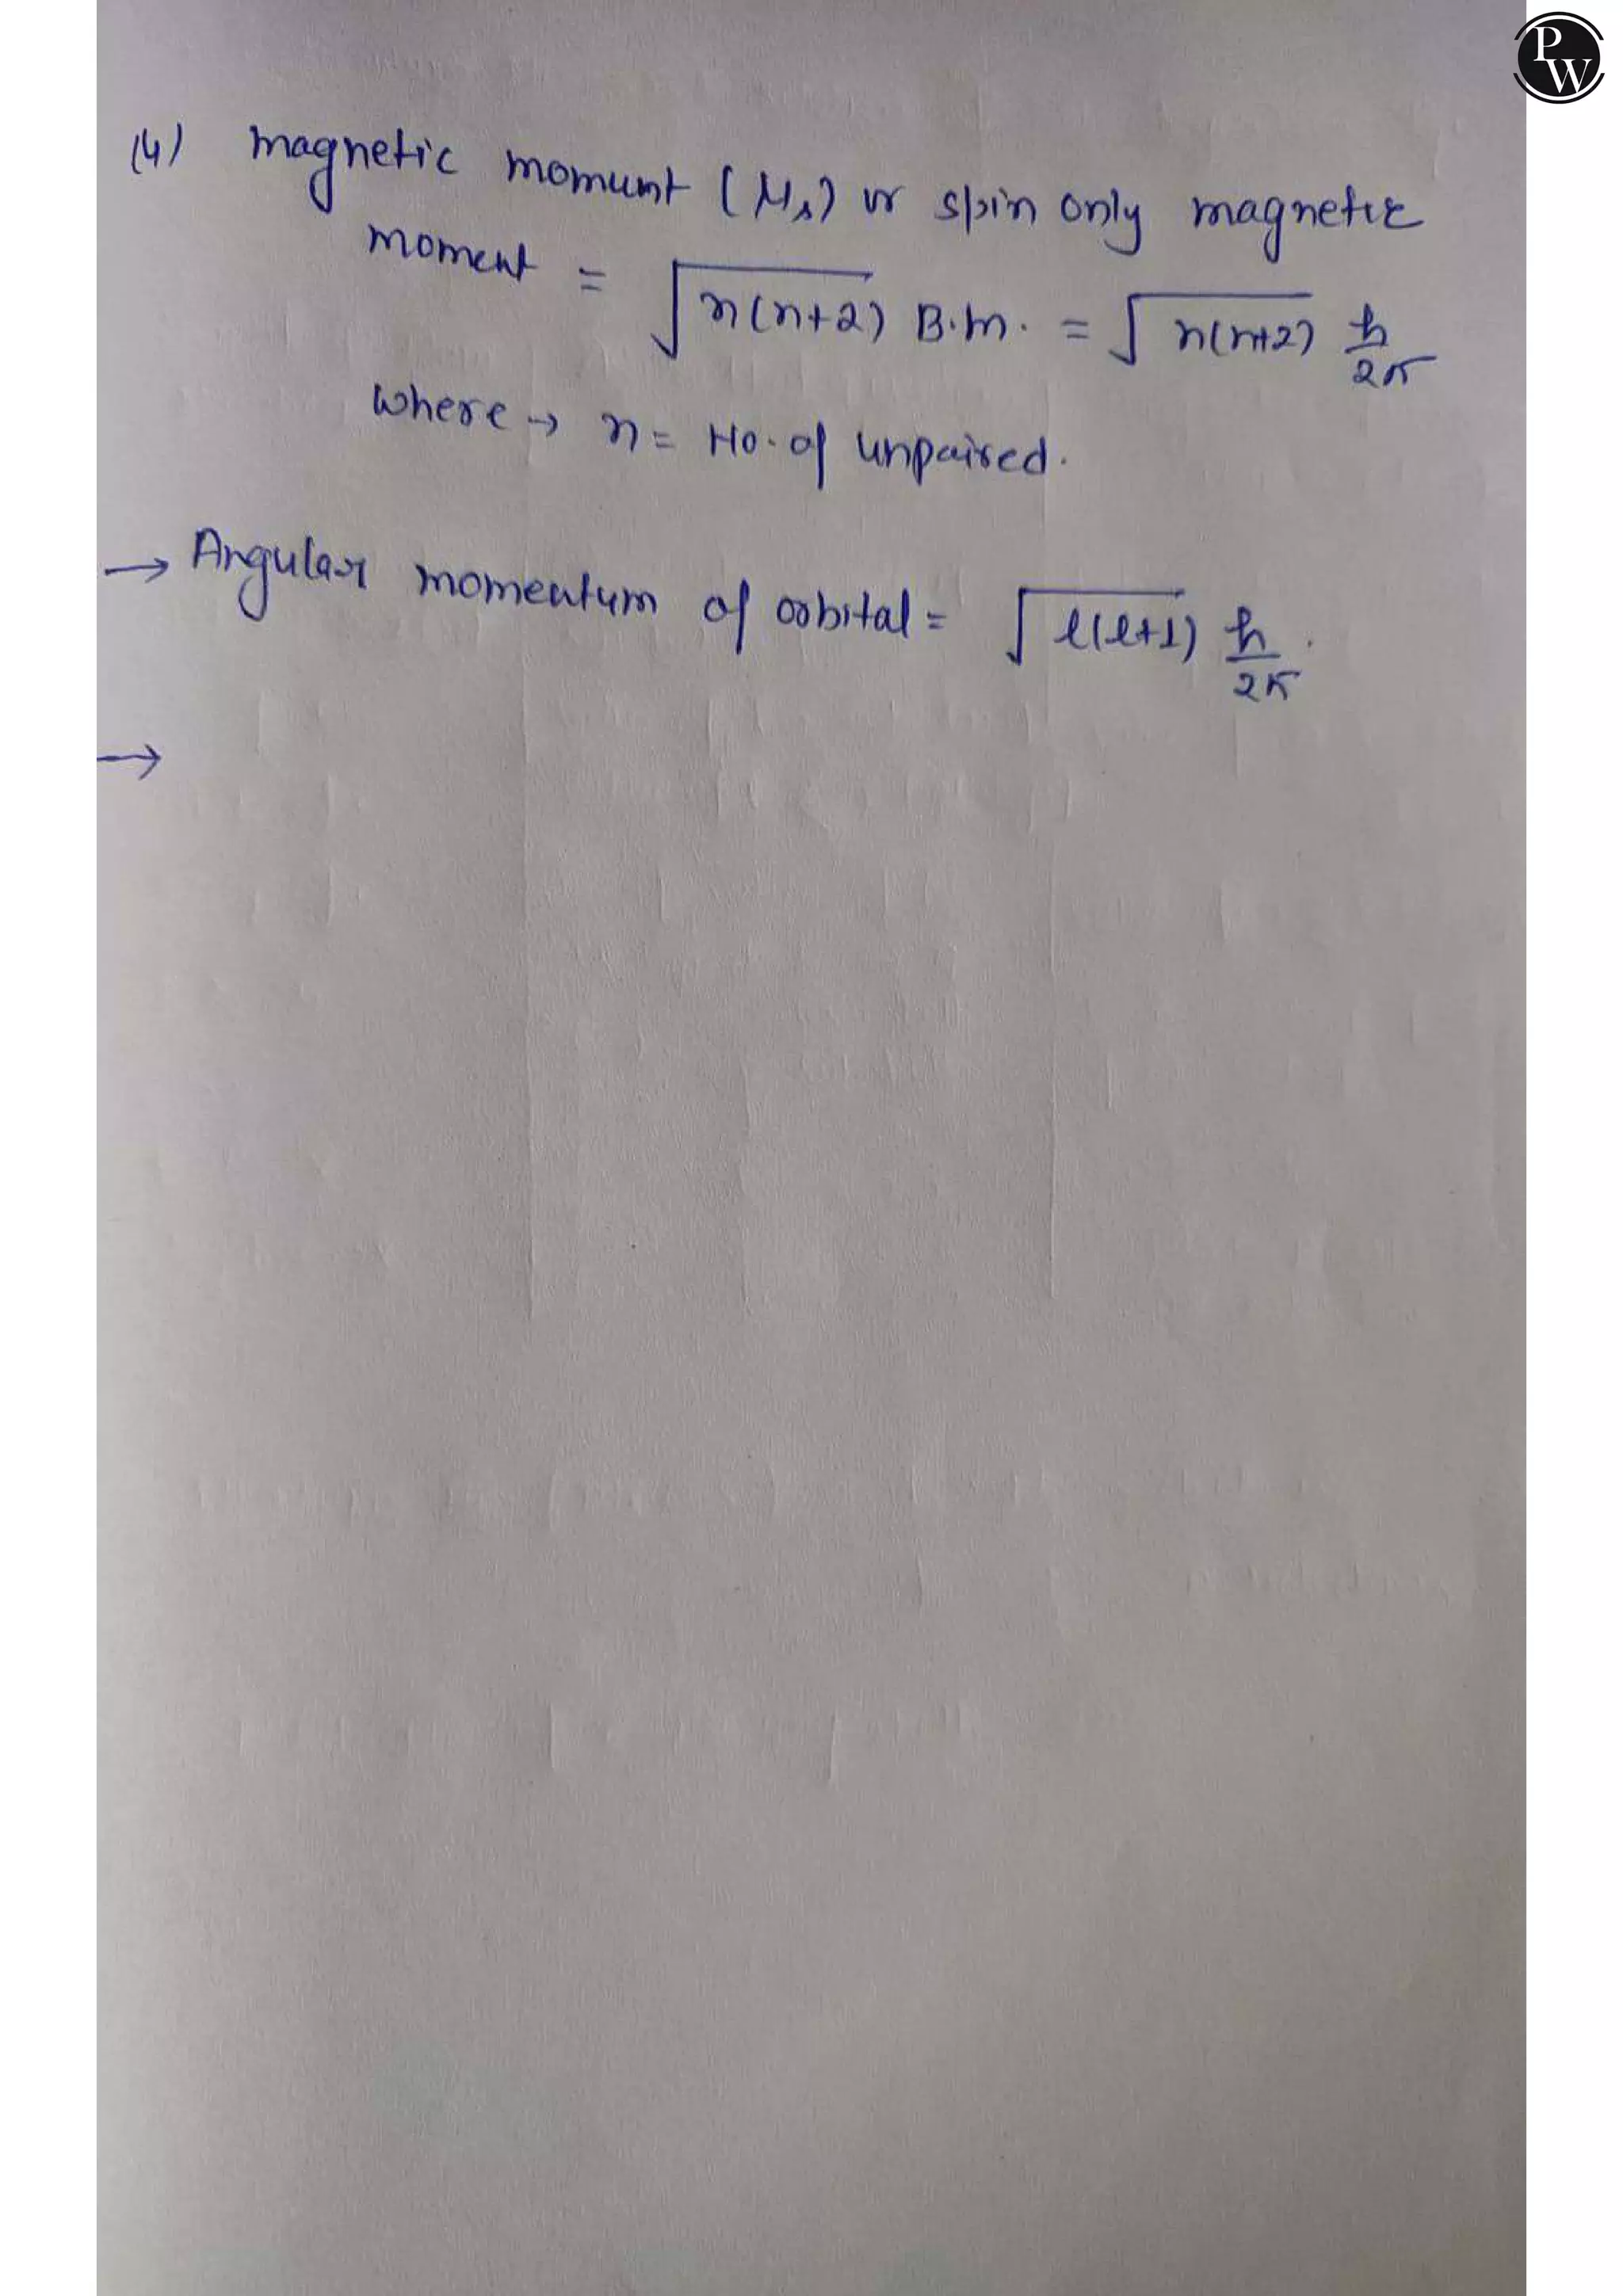 PW
(4) magnetic momunt (μs) or spin only magnetic
moment = √n(n+2) B.m. = √n(n+2) ħ/2π
where → n = No. of unpaired.
→ Angular momentum of orbital = √l(l+1) ħ/2π.
→